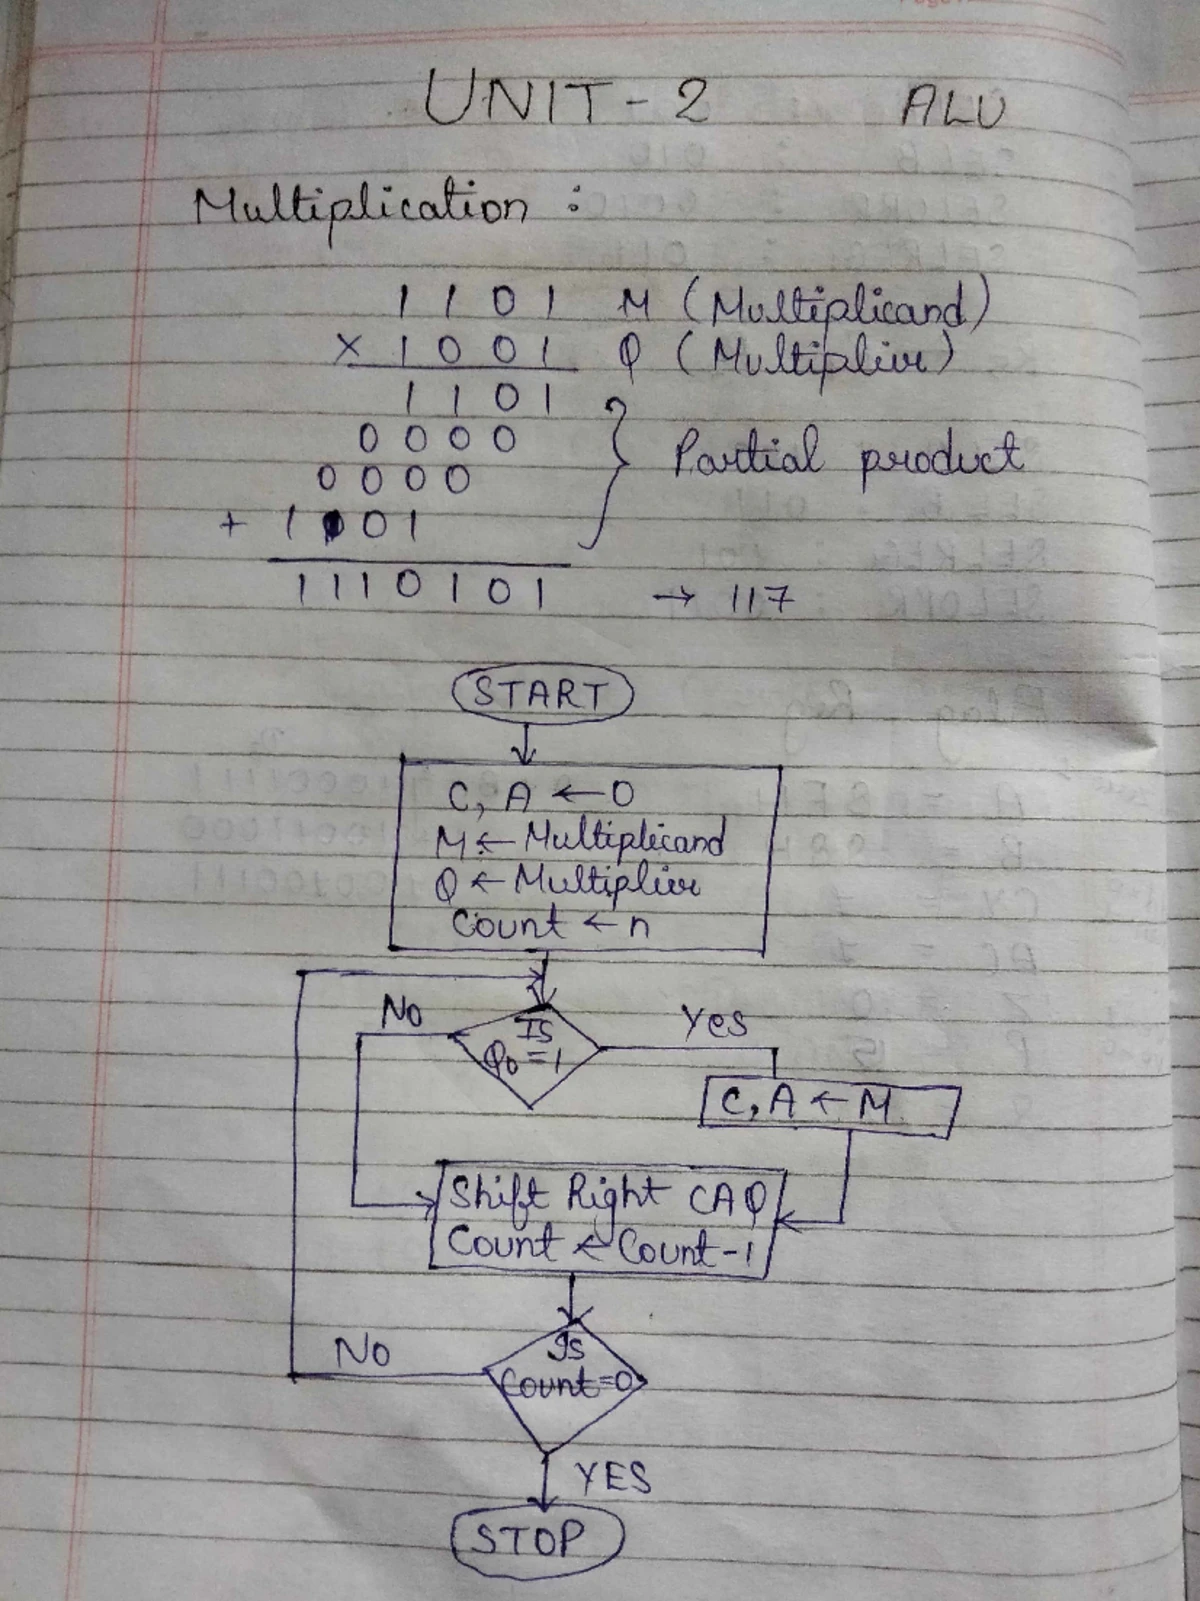 UNIT - 2 ALU
Multiplication :
1 1 0 1 M (Multiplicand)
× 1 0 0 1 Q (Multiplier)
1 1 0 1
0 0 0 0
0 0 0 0
Partial product
+ 1 1 0 1
1 1 1 0 1 0 1 → 117
START
C, A ← 0
M ← Multiplicand
Q ← Multiplier
Count ← n
No
Is
Q0 = 1
Yes
C, A ← M
Shift Right CAQ
Count ← Count - 1
No
Is
Count = 0
YES
STOP